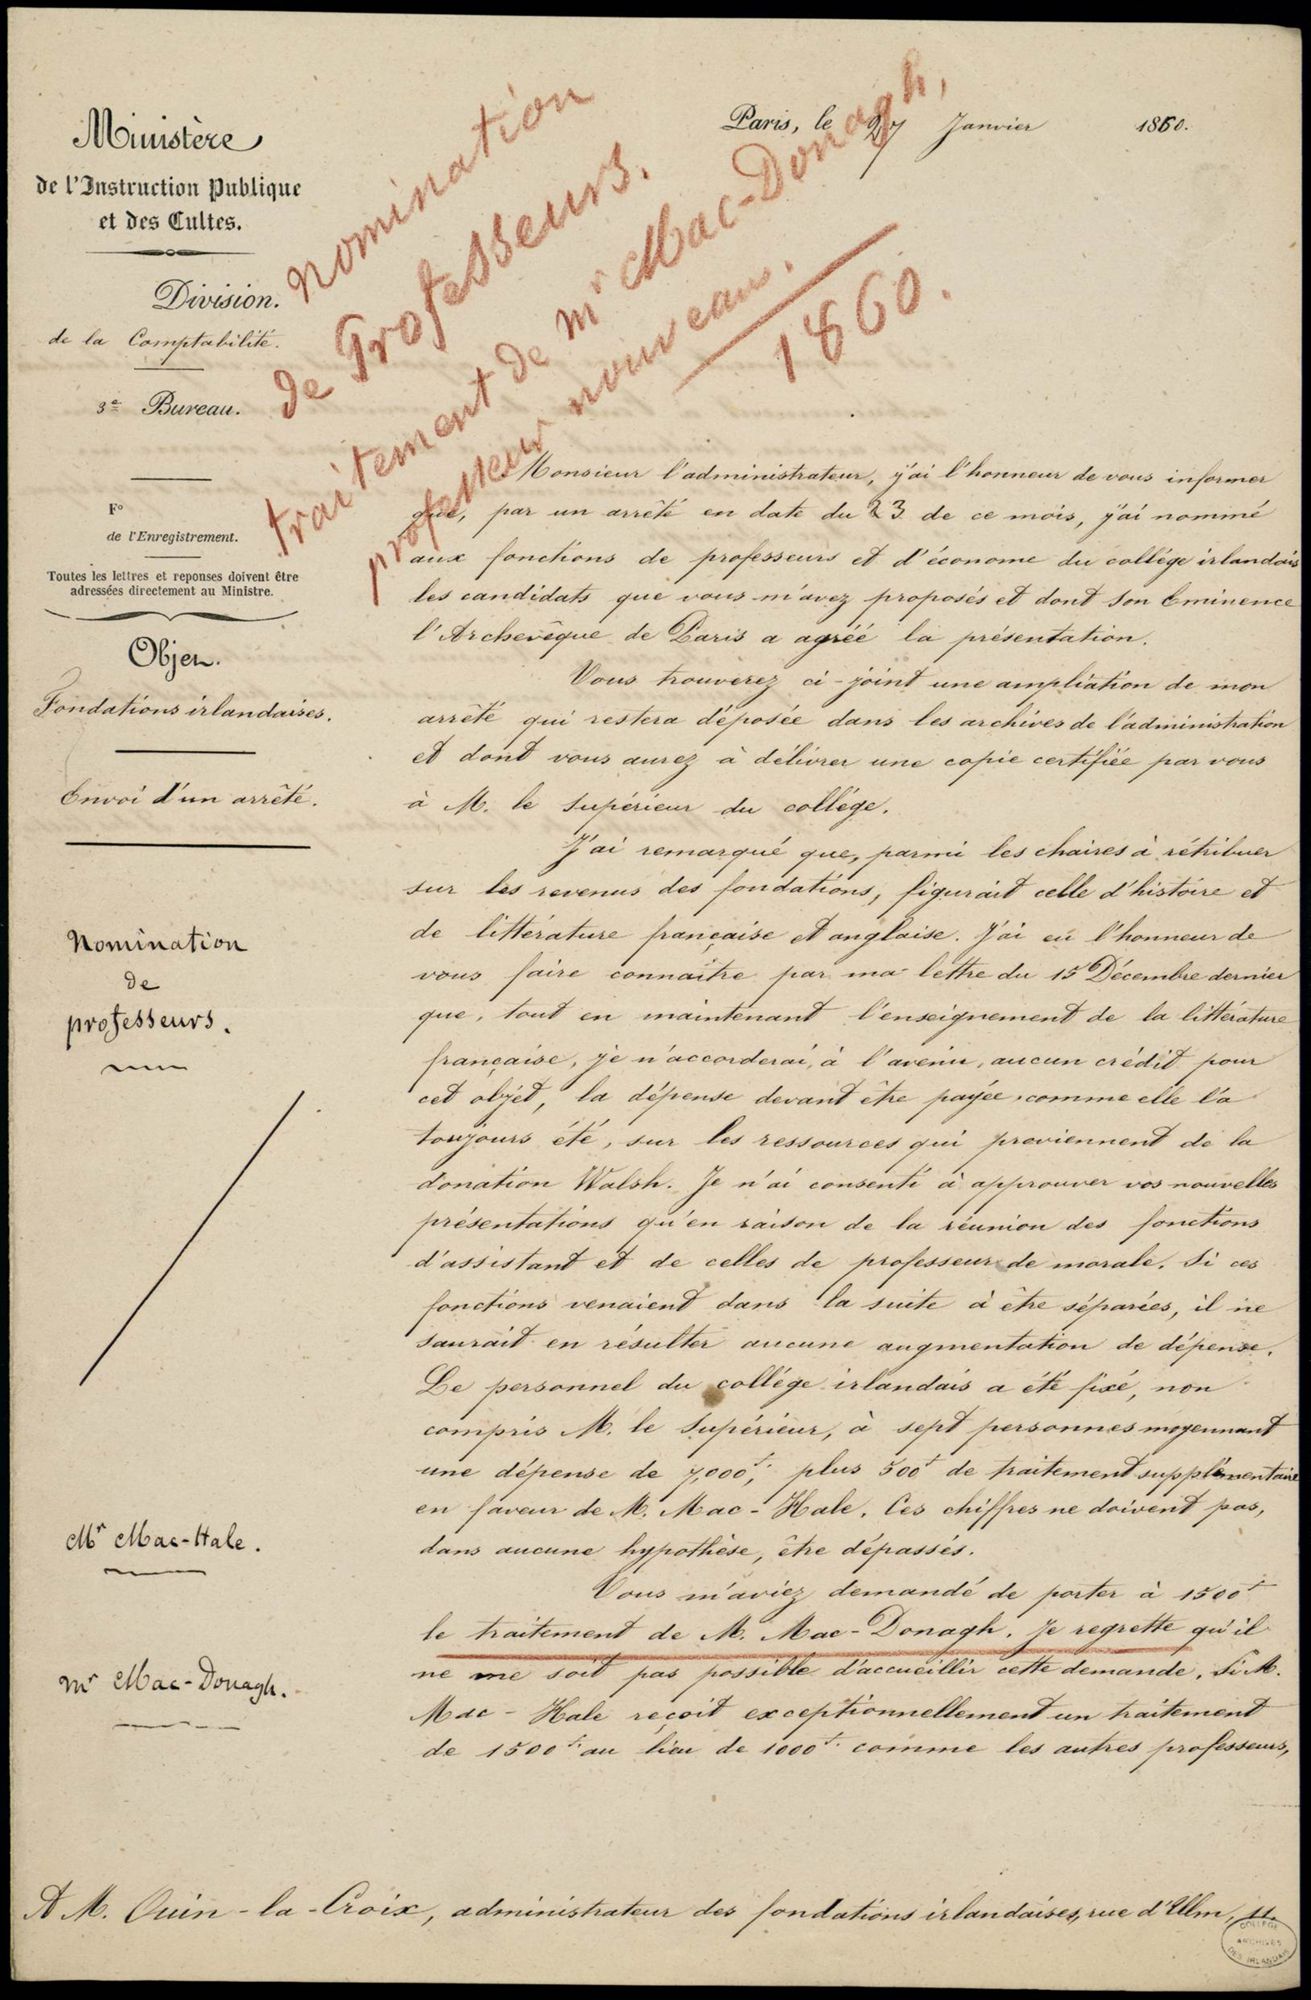 Ministère
de l'Instruction Publique
et des Cultes.
Division.
de la Comptabilité.
3e Bureau.
Fo
de l'Enregistrement.
Toutes les lettres et reponses doivent être
adressées directement au Ministre.
Objet.
Fondations irlandaises.
Envoi d'un arrêté.
Nomination
de
professeurs.
Mr Mac-Hale.
mr Mac-Donagh.
nomination
de Professeurs.
traitement de mr Mac-Donagh,
professeur nouveau.
1860.
Paris, le 27 Janvier 1860.
Monsieur l'administrateur, j'ai l'honneur de vous informer
que, par un arrêté en date du 23 de ce mois, j'ai nommé
aux fonctions de professeurs et d'économe du collége irlandais
les candidats que vous m'avez proposés et dont Son Eminence
l'Archevêque de Paris a agréé la présentation.
Vous trouverez ci-joint une ampliation de mon
arrêté qui restera déposée dans les archives de l'administration
et dont vous aurez à délivrer une copie certifiée par vous
à M. le Supérieur du collége.
J'ai remarqué que, parmi les chaires à rétribuer
sur les revenus des fondations, figurait celle d'histoire et
de littérature française et anglaise. J'ai eu l'honneur de
vous faire connaître par ma lettre du 15 Décembre dernier
que, tout en maintenant l'enseignement de la littérature
française, je n'accorderai, à l'avenir, aucun crédit pour
cet objet, la dépense devant être payée, comme elle l'a
toujours été, sur les ressources qui proviennent de la
donation Walsh. Je n'ai consenti à approuver vos nouvelles
présentations qu'en raison de la réunion des fonctions
d'assistant et de celles de professeur de morale. Si ces
fonctions venaient dans la suite à être séparées, il ne
saurait en résulter aucune augmentation de dépense.
Le personnel du collége irlandais a été fixé, non
compris M. le Supérieur, à sept personnes moyennant
une dépense de 7,000f, plus 500f de traitement supplémentaire
en faveur de M. Mac-Hale. Ces chiffres ne doivent pas,
dans aucune hypothèse, être dépassés.
Vous m'aviez demandé de porter à 1500f
le traitement de M. Mac-Donagh. Je regrette qu'il
ne me soit pas possible d'accueillir cette demande. Si M.
Mac-Hale reçoit exceptionnellement un traitement
de 1500f. au lieu de 1000f. comme les autres professeurs,
A M. Ouin-la-Croix, administrateur des fondations irlandaises, rue d'Ulm, 11.
COLLEGE
ARCHIVES
DES IRLANDAIS